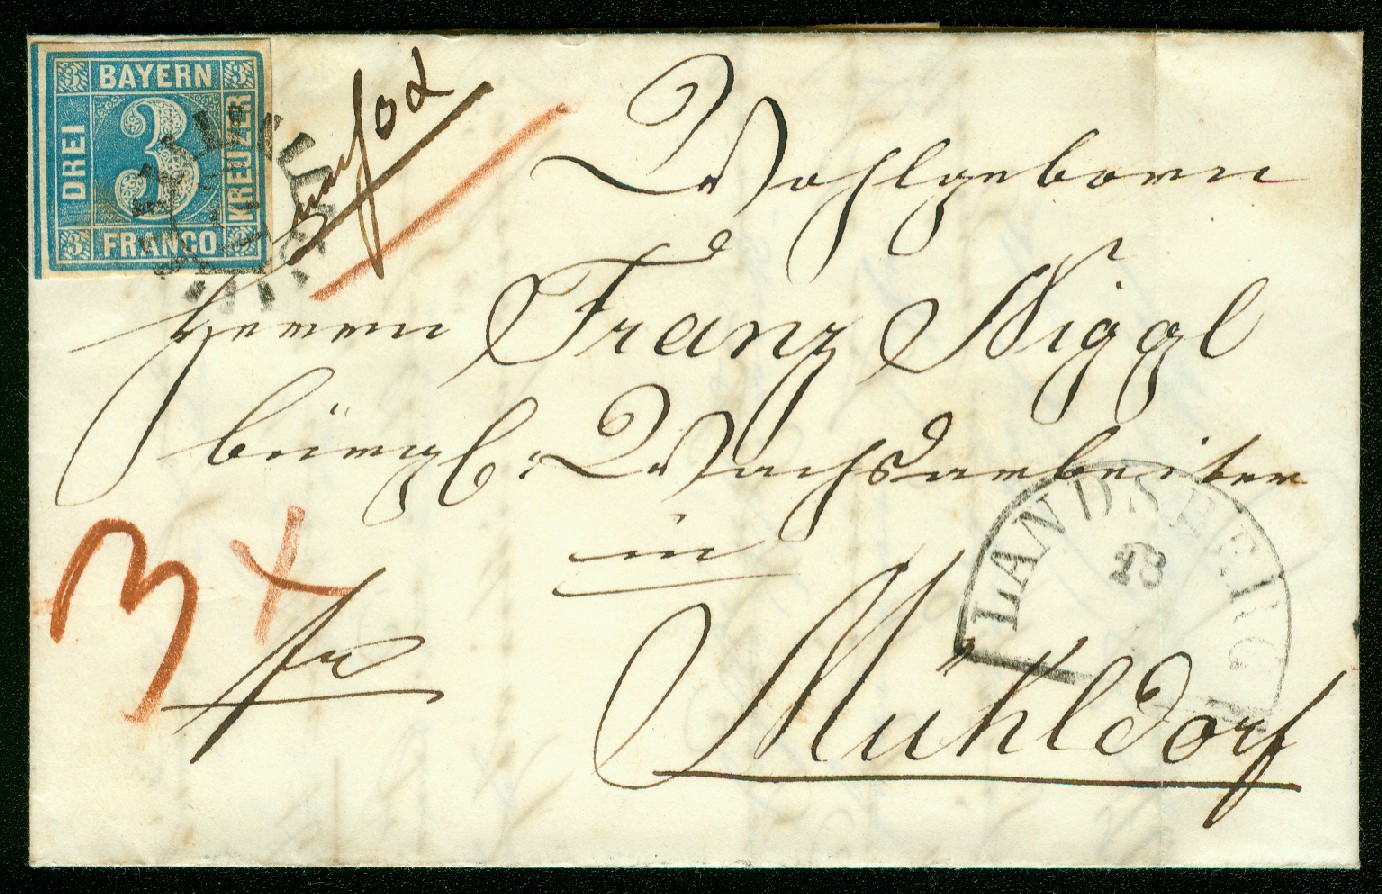 3 BAYERN 3
DREI 3 KREUZER
3 FRANCO 3
Wohlgeborn
Herrn Franz Niggl
bürgl: Wachsarbeiter
in
Mühldorf
LANDSBERG
3 x
fr